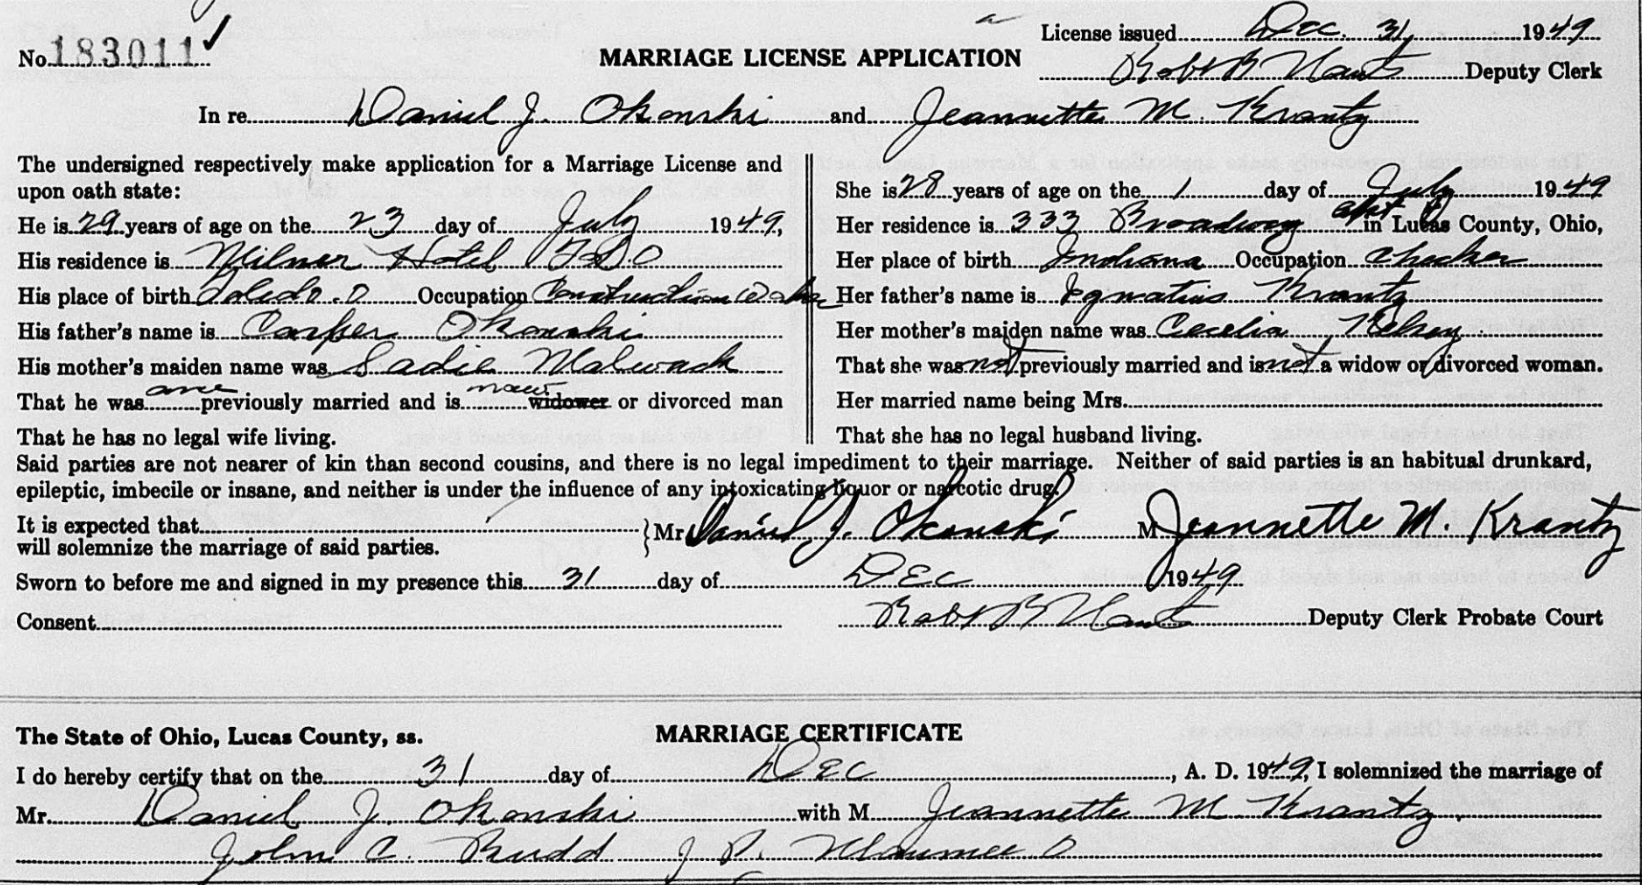 No. 183011 ✓
MARRIAGE LICENSE APPLICATION
License issued Dec. 31, 1949
Robt B Deputy Clerk
In re Daniel J. Okonski and Jeannette M. Krantz
The undersigned respectively make application for a Marriage License and
upon oath state:
He is 29 years of age on the 23 day of July 1949,
His residence is Milner Hotel
His place of birth Toledo. O Occupation Construction
His father's name is Casper Okonski
His mother's maiden name was Sadie
That he was once previously married and is now widower or divorced man
That he has no legal wife living.
She is 28 years of age on the 1 day of July 1949
Her residence is 333 Broadway apt in Lucas County, Ohio,
Her place of birth Indiana Occupation Checker
Her father's name is Ignatius Krantz
Her mother's maiden name was Cecelia Kelsey
That she was not previously married and is not a widow or divorced woman.
Her married name being Mrs.
That she has no legal husband living.
Said parties are not nearer of kin than second cousins, and there is no legal impediment to their marriage. Neither of said parties is an habitual drunkard,
epileptic, imbecile or insane, and neither is under the influence of any intoxicating liquor or narcotic drug.
It is expected that
will solemnize the marriage of said parties.
Mr Daniel J. Okonski M Jeannette M. Krantz
Sworn to before me and signed in my presence this 31 day of DEC 1949
Consent
Robt B Deputy Clerk Probate Court
The State of Ohio, Lucas County, ss.
MARRIAGE CERTIFICATE
I do hereby certify that on the 31 day of DEC, A. D. 1949, I solemnized the marriage of
Mr. Daniel J. Okonski with M Jeannette M. Krantz
John C. Rudd J P. Maumee O